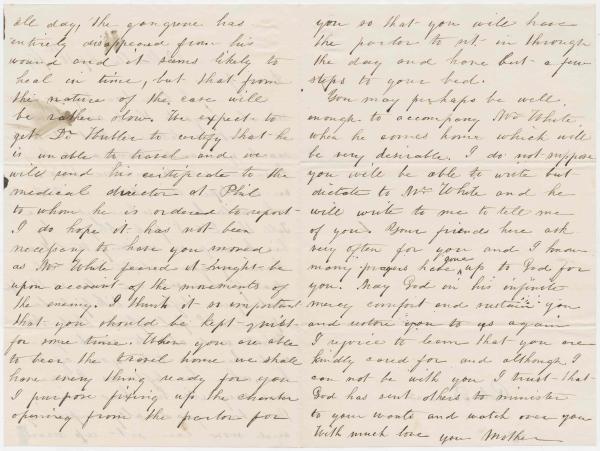 all day, the gangrene has
entirely disappeared from his
wound and it seems likely to
heal in time, but that from
the nature of the case will
be rather slow. We expect to
get Dr Hubler to certify that he
is unable to travel and we
will send his certificate to the
medical director at Phil
to whom he is ordered to report-
I do hope it has not been
necessary to have you moved
as Mr White feared it might be
upon account of the movements of
the enemy. I think it so important
that you should be kept quiet
for some time. When you are able
to bear the travel home we shall
have every thing ready for you
I purpose fixing up the chamber
opening from the parlor for
you so that you will have
the parlor to sit in through
the day and have but a few
steps to your bed.
You may perhaps be well
enough to accompany Mr White
when he comes home which will
be very desirable. I do not suppose
you will be able to write but
dictate to Mr White and he
will write to me to tell me
of you. Your friends here ask
very often for you and I know
many prayers have gone up to God for
you. May God in his infinite
mercy comfort and sustain you
and restore you to us again
I rejoice to learn that you are
kindly cared for and although I
can not be with you I trust that
God has sent others to minister
to your wants and watch over you
With much love you Mother